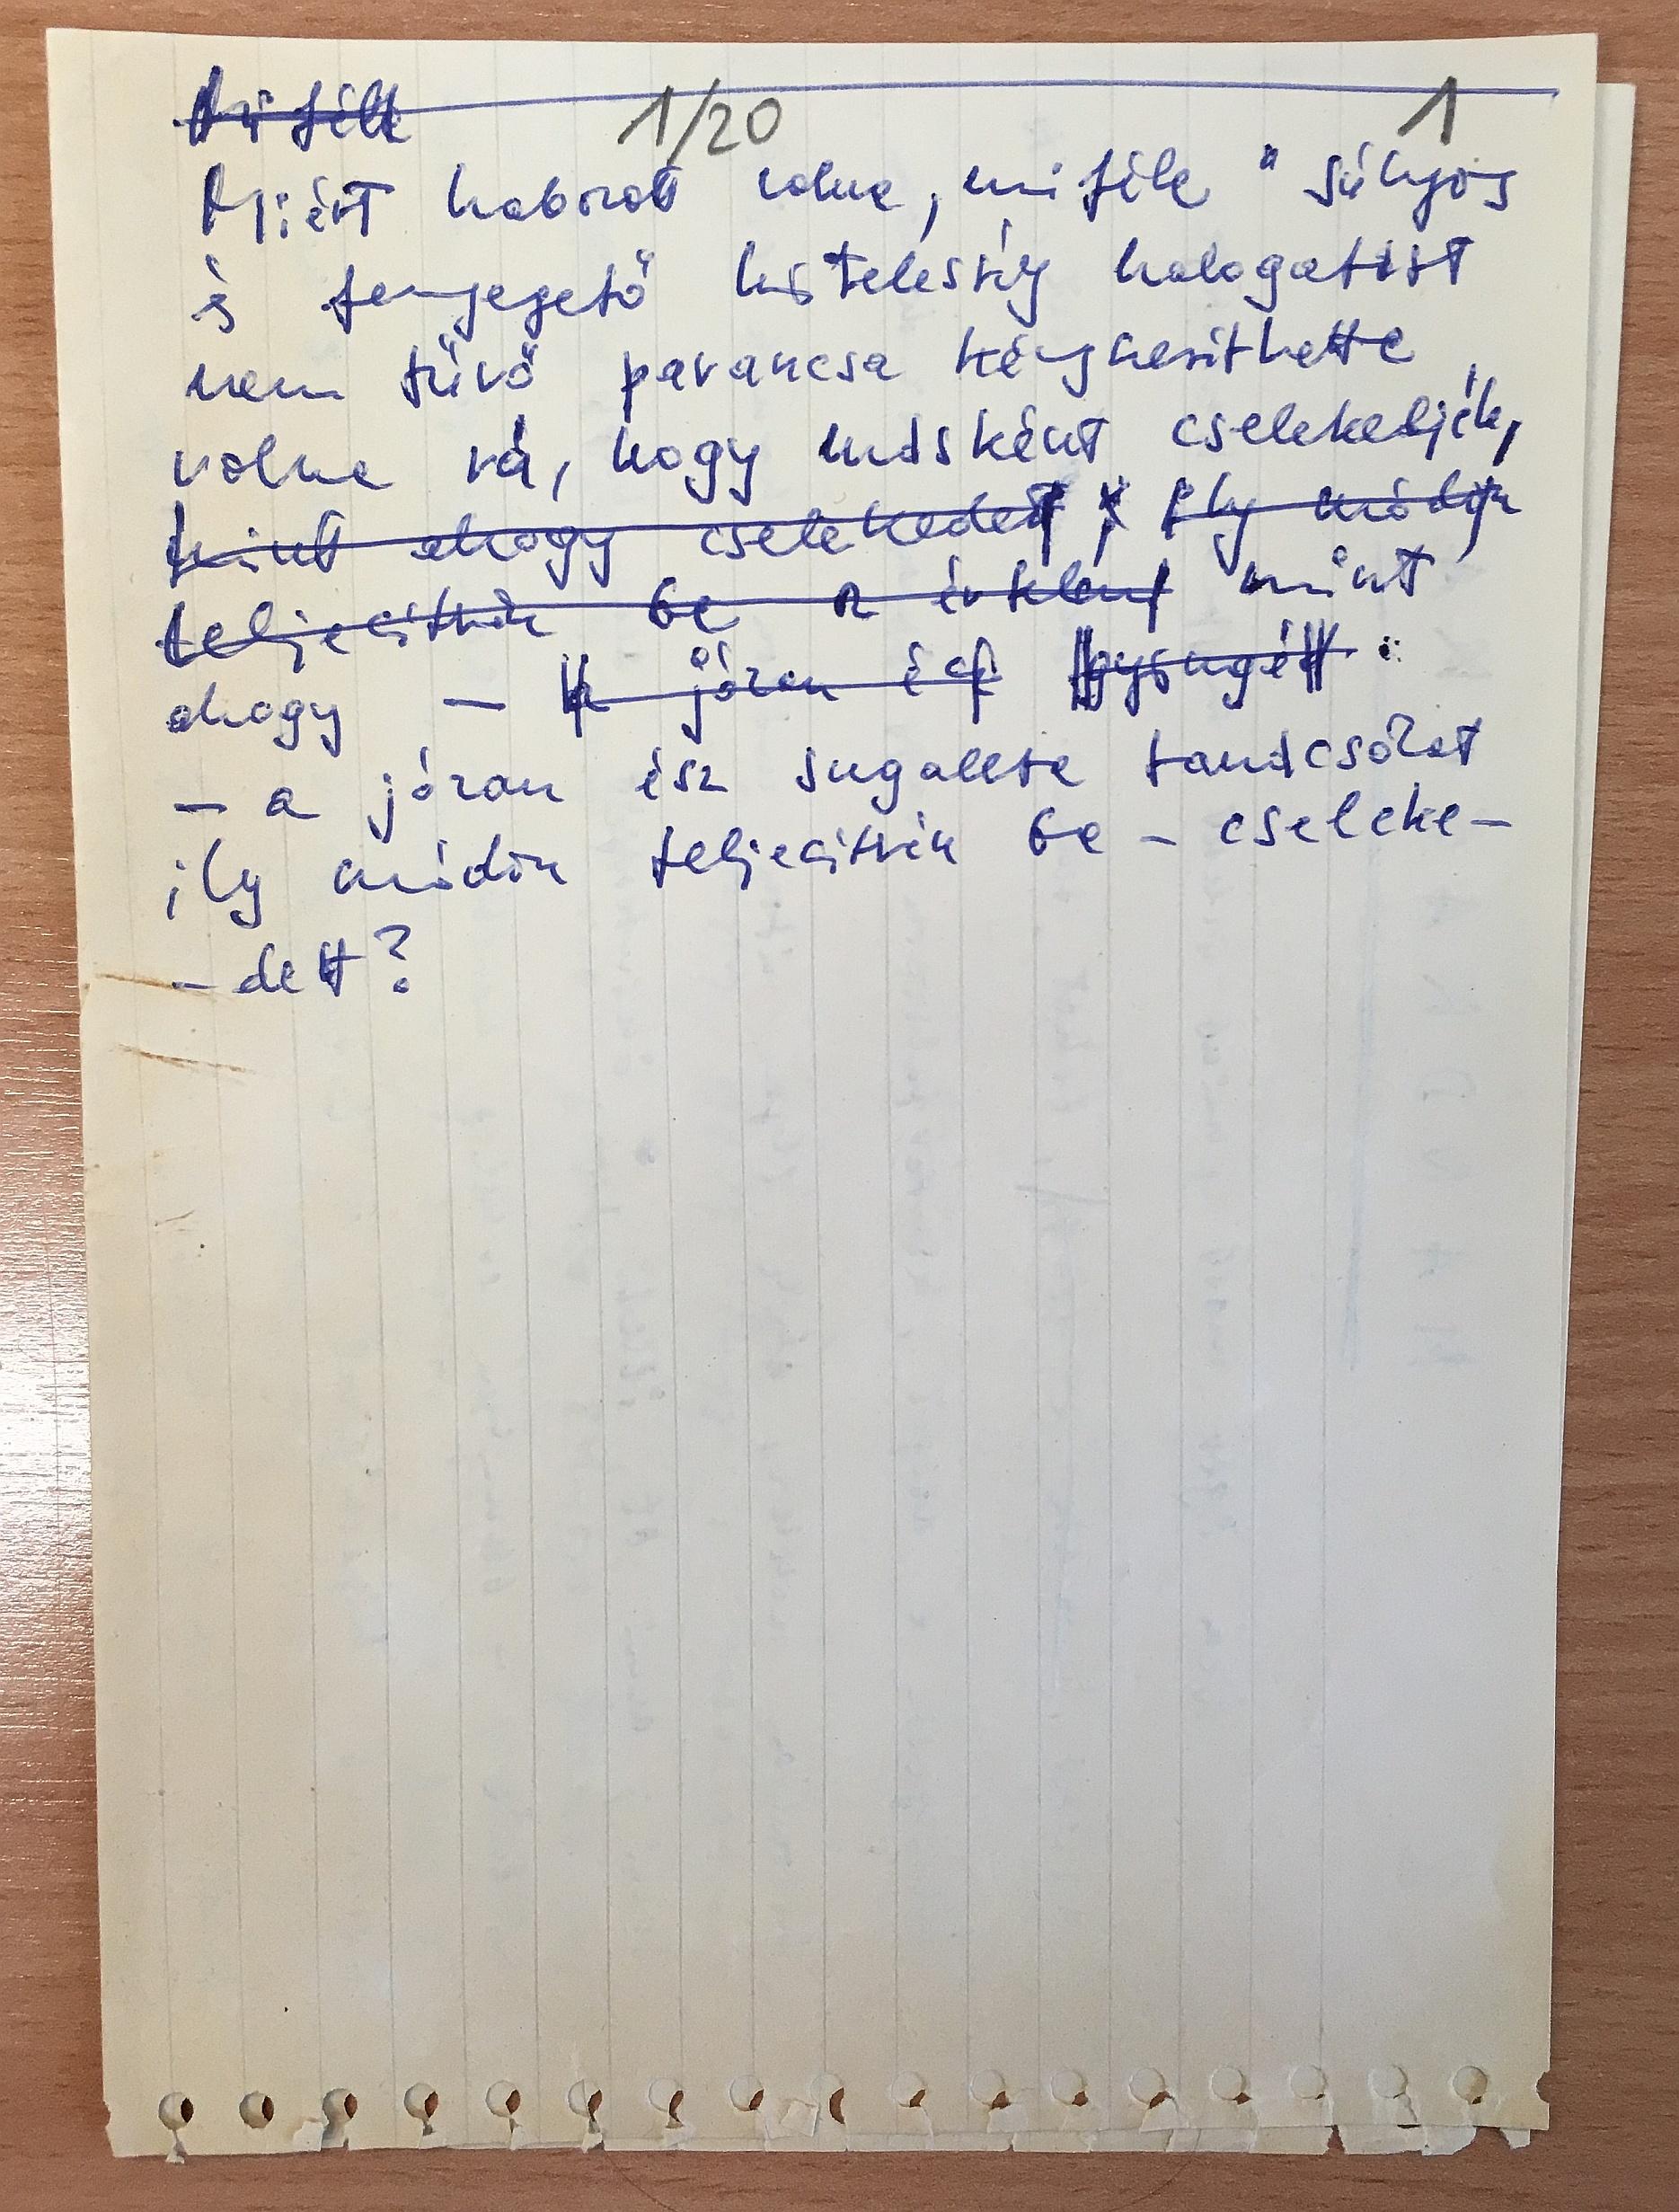 Mi féle
1/20 1
Miért habozott volna, miféle "súlyos
és fenyegető" kötelesség halogatást
nem tűrő parancsa kényszeríthette
volna rá, hogy másként cselekedjék,
mint ahogy cselekedett; ily módon
teljesítvén be mint
ahogy — a józan ész
— a józan ész sugallta tanácsát
ily módon teljesítvén be – cseleke-
- dett?